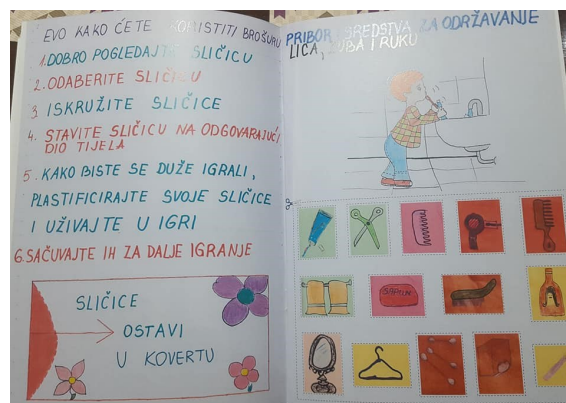 EVO KAKO ĆETE KORISTITI BROŠURU
1. DOBRO POGLEDAJTE SLIČICU
2. ODABERITE SLIČICU
3. ISKRUŽITE SLIČICE
4. STAVITE SLIČICU NA ODGOVARAJUĆI
DIO TIJELA
5. KAKO BISTE SE DUŽE IGRALI,
PLASTIFICIRAJTE SVOJE SLIČICE
I UŽIVAJTE U IGRI
6. SAČUVAJTE IH ZA DALJE IGRANJE
SLIČICE
OSTAVI
U KOVERTU
PRIBOR I SREDSTVA ZA ODRŽAVANJE
LICA, ZUBA I RUKU
SAPUN